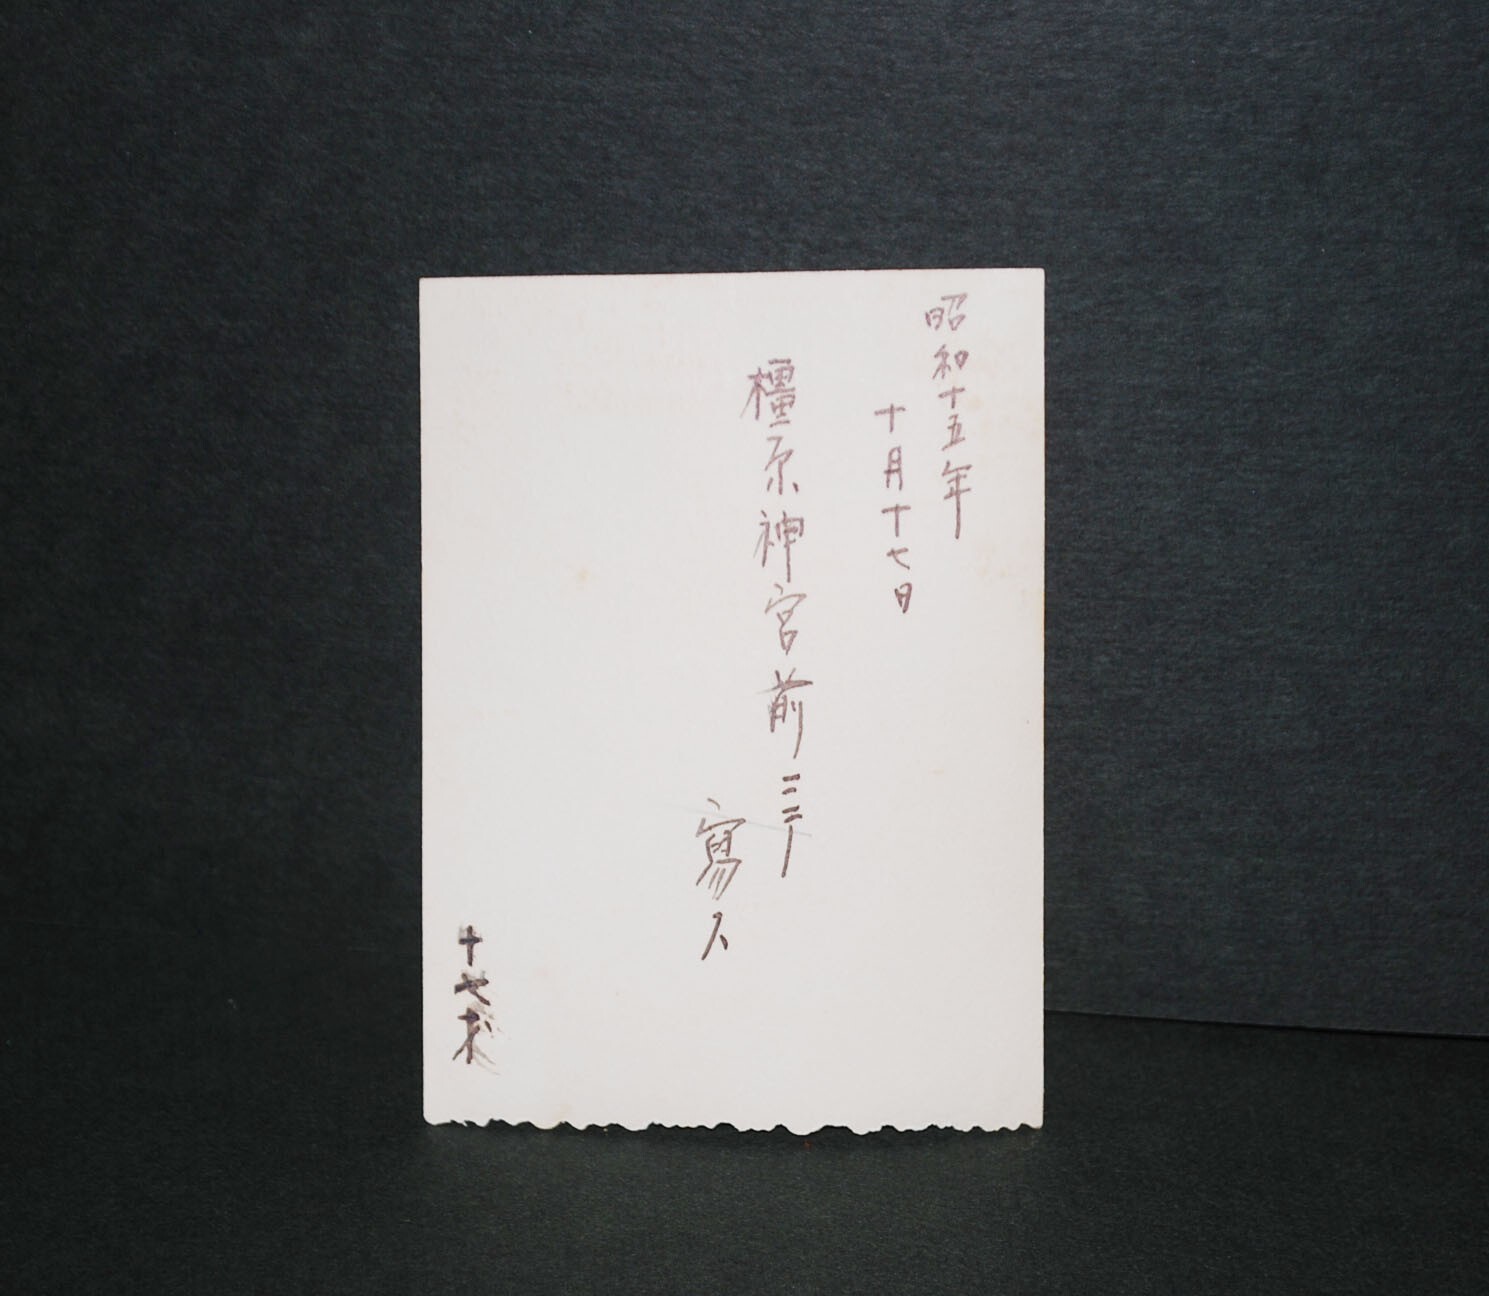 昭和十五年
十月十七日
橿原神宮前ニテ
寫ス
十七才